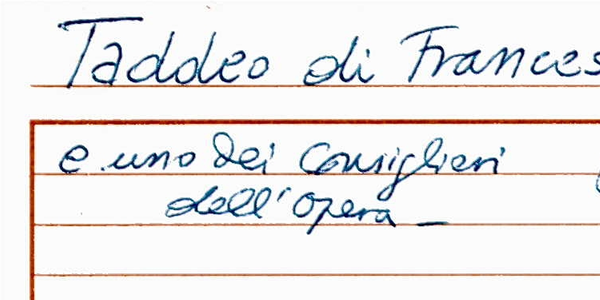 Taddeo di Frances
e uno dei Consiglieri
dell'Opera –